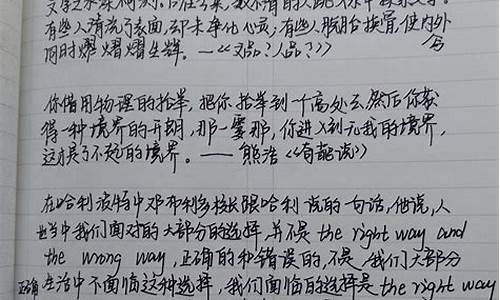 有些人清洗了表面,却未净化心灵;有些人脱胎换骨,使内外
同时熠熠生辉。——《文品?人品?》
你借用物理的抬举,把你抬举到一个高处去,然后你获
得一种境界的开朗,那一霎那,你进入到无我的境界,
这才是了不起的境界。——熊浩《奇葩说》
在哈利波特中邓布利多校长跟哈利说的一句话,他说,人
当中我们面对的大部分的选择,并不是 the right way and
the wrong way,正确的和错误的,不是,我们大部分
正确 生活中不面临这种选择,我们面临的选择是 the right way